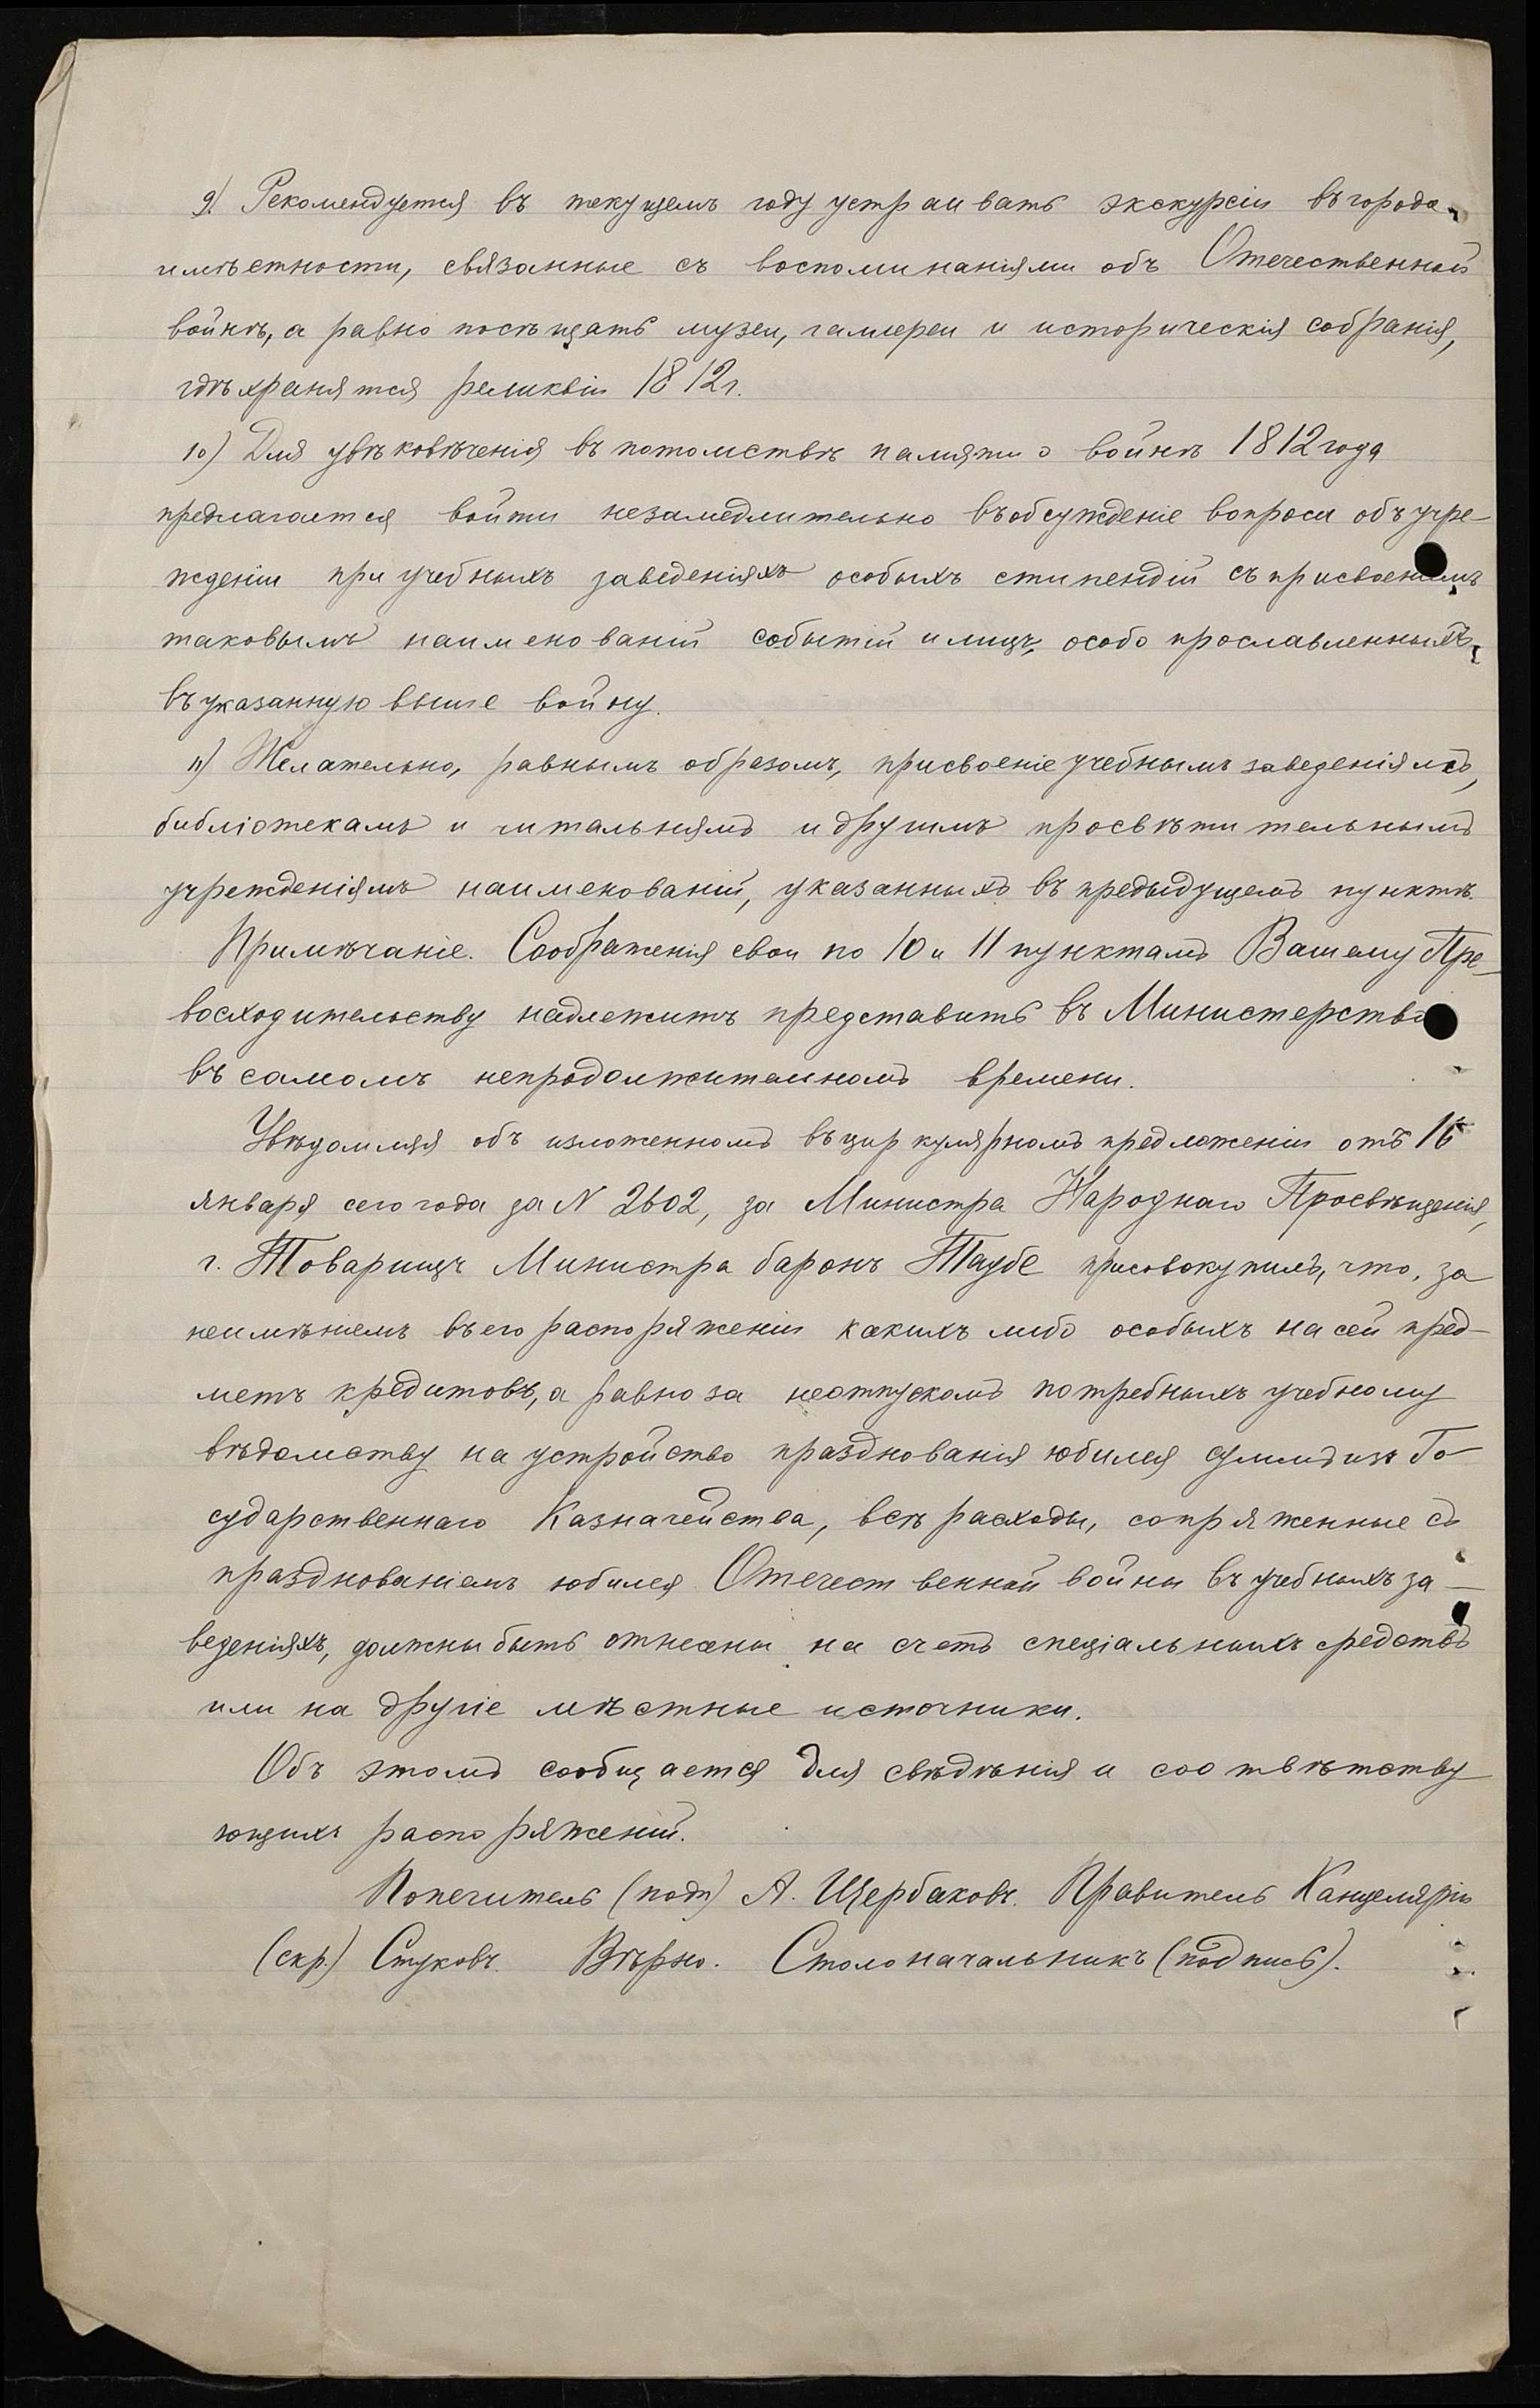 9) Рекомендуется въ текущемъ году устраивать экскурсіи въ города
и мѣстности, связанные съ воспоминаніями объ Отечественной
войнѣ, а равно посѣщать музеи, галлереи и историческія собранія,
гдѣ хранятся реликвіи 1812 г.
10) Для увѣковѣченія въ потомствѣ памяти о войнѣ 1812 года
предлагается войти незамедлительно въ обсужденіе вопроса объ учре-
жденіи при учебныхъ заведеніяхъ особыхъ стипендій съ присвоеніемъ
таковымъ наименованій событій и лицъ, особо прославленныхъ
въ указанную выше войну.
11) Желательно, равнымъ образомъ, присвоеніе учебнымъ заведеніямъ,
библіотекамъ и читальнямъ и другимъ просвѣтительнымъ
учрежденіямъ наименованій, указанныхъ въ предыдущемъ пунктѣ.
Примѣчаніе. Соображенія свои по 10 и 11 пунктамъ Вашему Пре-
восходительству надлежитъ представить въ Министерство
въ самомъ непродолжительномъ времени.
Увѣдомляя объ изложенномъ въ циркулярномъ предложеніи отъ 16
января сего года за N 2602, за Министра Народнаго Просвѣщенія,
г. Товарищъ Министра баронъ Таубе присовокупилъ, что, за
неимѣніемъ въ его распоряженіи какихъ либо особыхъ на сей пред-
метъ кредитовъ, а равно за неотпускомъ потребныхъ учебному
вѣдомству на устройство празднованія юбилея суммъ изъ Го-
сударственнаго Казначейства, всѣ расходы, сопряженные съ
празднованіемъ юбилея Отечественной войны въ учебныхъ за-
веденіяхъ, должны быть отнесены на счетъ спеціальныхъ средствъ
или на другіе мѣстные источники.
Объ этомъ сообщается для свѣдѣнія и соотвѣтству
ющихъ распоряженій.
Попечитель (подп) А. Щербаковъ. Правитель Канцеляріи
(скр.) Стуковъ. Вѣрно. Столоначальникъ (подпись).